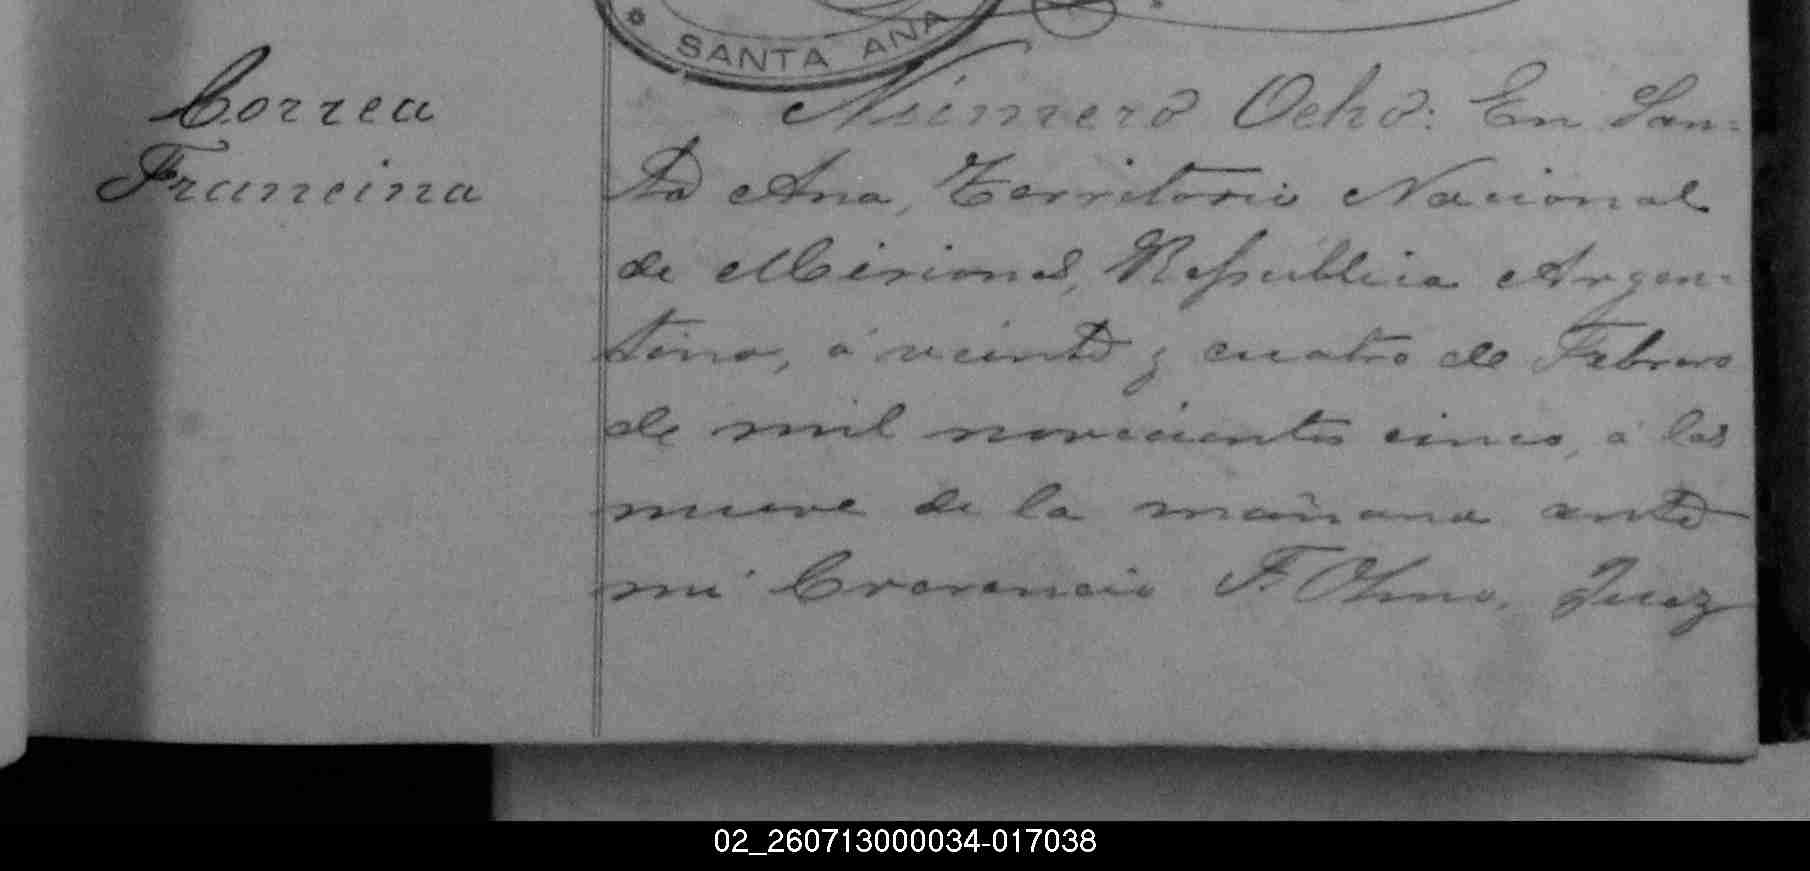 SANTA ANA
Correa
Francina
Número Ocho: En San-
ta Ana, Territorio Nacional
de Misiones, República Argen-
tina, á veinte y cuatro de Febrero
de mil novecientos cinco, á las
nueve de la mañana ante
mi F. Olmo, Juez
02_260713000034-017038